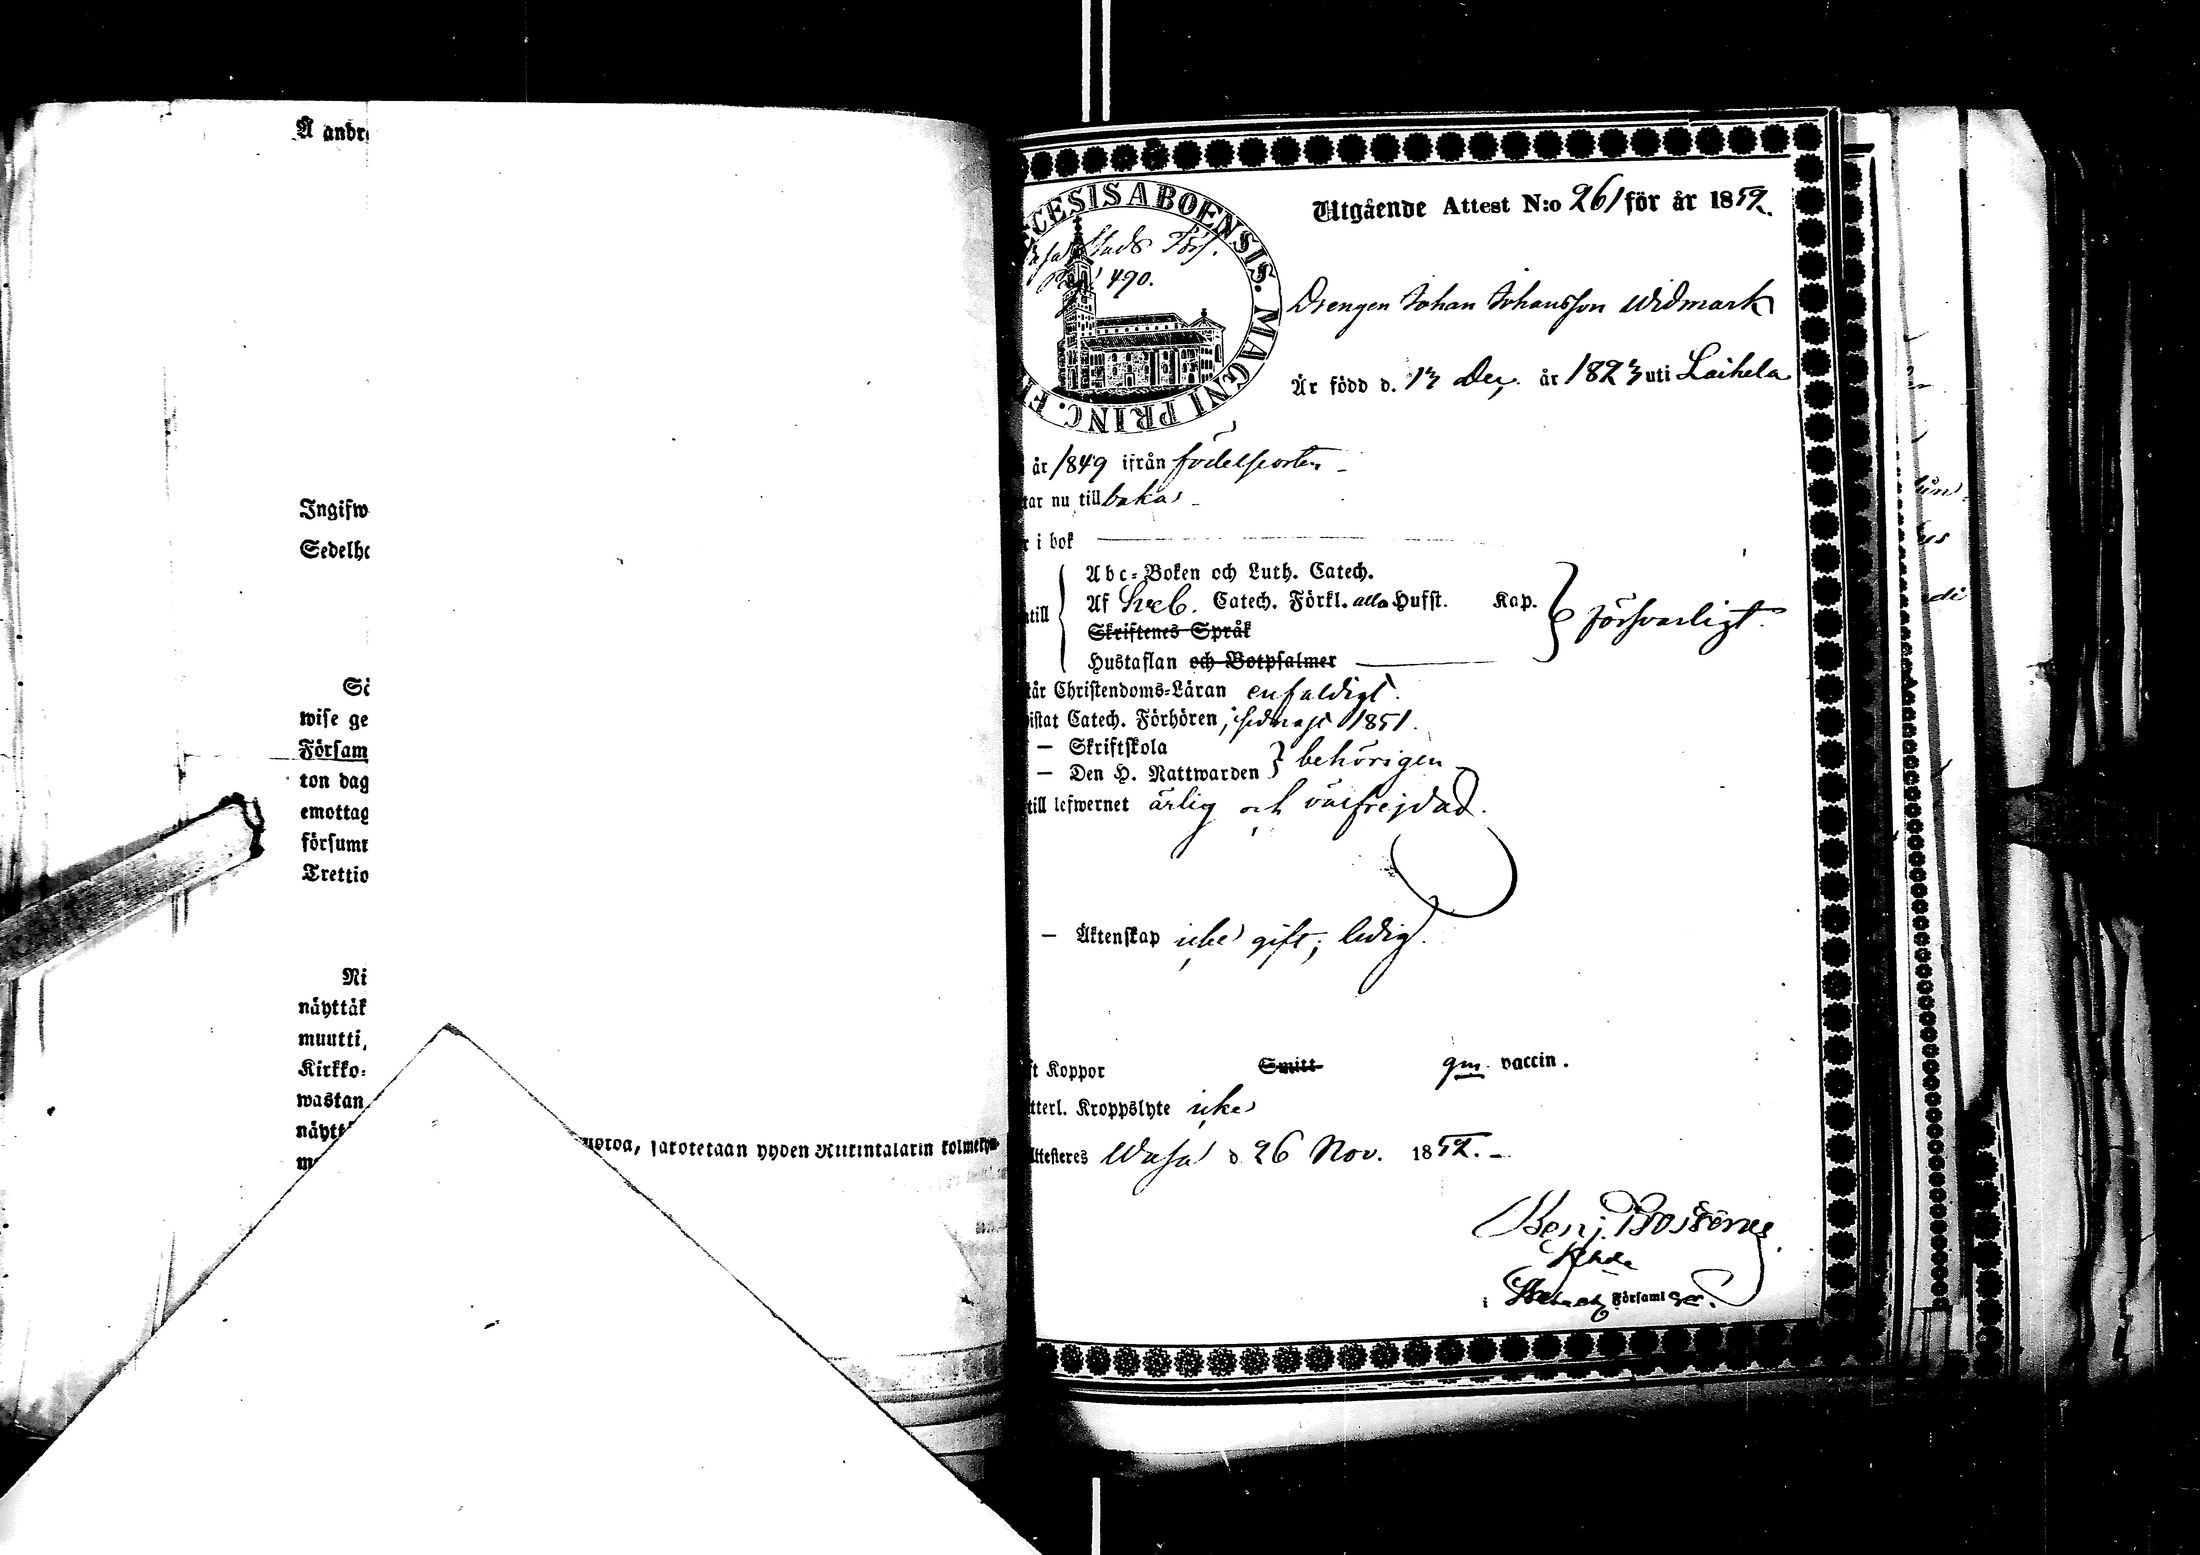 Å andr
Ingifw
Sedelh
Sö
wise ge
Försam
ton dag
emottag
försum
Trettio
Ni
näyttäk
muutti,
Kirkko-
wastan
näytt
uorwa, sakotetaan yhden Kiikintalarin kolmekym
CESIS ABOENSIS. MAGNI PRINC. FI
Wasa Stads Förs.
490.
Utgående Attest N:o 261 för år 1852.
Drengen Johan Johansson Widmark
Är född d. 13 Dec. år 1823 uti Laihela
år 1849 ifrån födelseorten
tar nu till baka
i bok
Abc-Boken och Luth. Catech.
till Af Sveb. Catech. Förkl. alla Husst. Kap. försvarligt.
Skriftenes Språk
Hustaflan och Botpsalmer
tår Christendoms-Läran enfaldigt.
istat Catech. Förhören, sednast 1851.
— Skriftskola
— Den H. Nattwarden behörigen
till lefwernet ärlig och välfrejdad.
— Äktenskap icke gift, ledig.
ft Koppor Smitt gm. vaccin.
tterl. Kroppslyte icke
Attesteres Wasa d. 26 Nov. 1852.
Benj.
i Församl